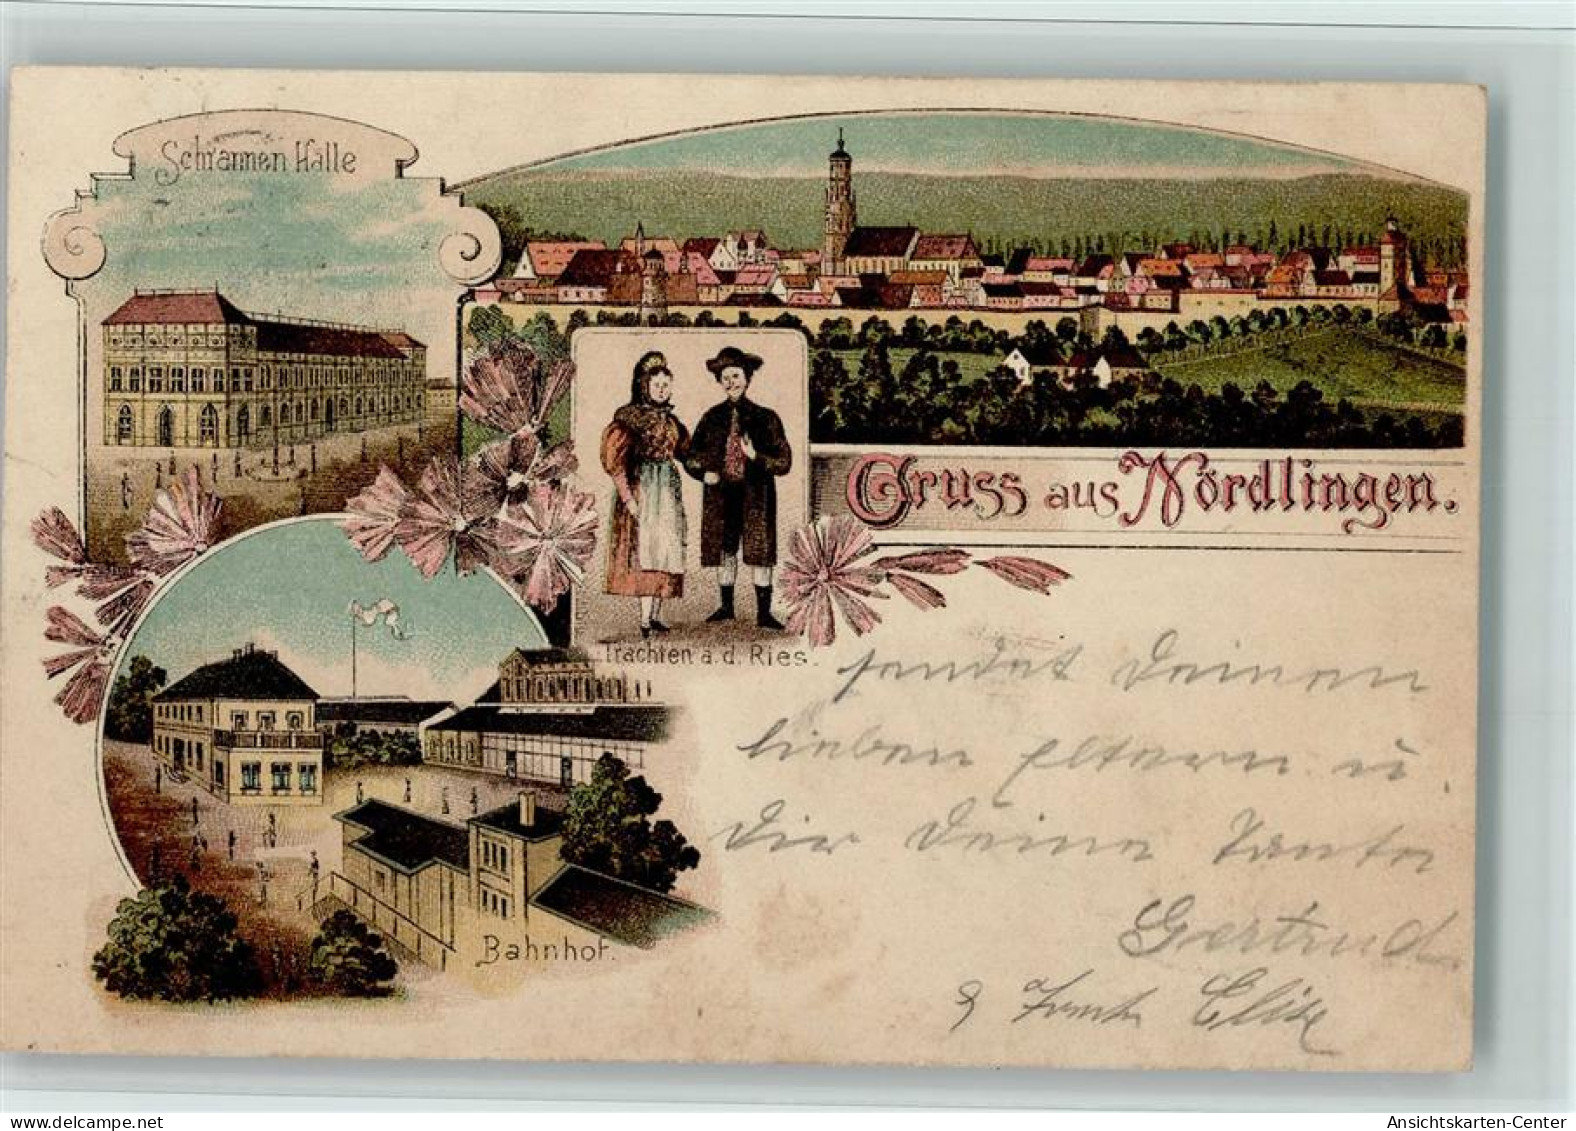 Schrannen Halle
Gruss aus Nördlingen.
Trachten a. d. Ries.
Bahnhof.
sendet Deinen
lieben Eltern u.
Dir Deine Tante
Gertrud
Elise
delcampe.net
Ansichtskarten-Center